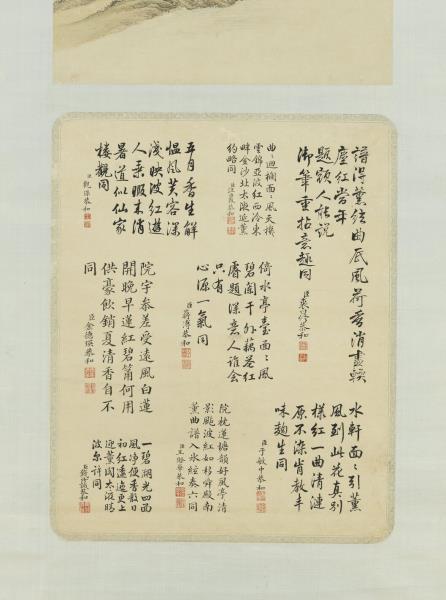 譜得薰絃曲底風荷香消盡輭
塵紅當年
題額人能說
御筆重拈意趣同
臣裘曰修恭和
曲曲迴欄面面風天機
雲錦亞波紅西泠東
畔金沙北太液延薰
約略同
臣汪由敦恭和
平月香生解
慍風芙容深
淺映波紅遊
人乘暇來消
暑道似仙家
樓觀同
臣觀保恭和
倚水亭臺面面風
碧闌干外藕花紅
賡題深意人誰會
只有
心源一氣同
臣蔣溥恭和
院宇參差受遠風白蓮
開晚早蓮紅碧筩何用
供豪飲銷夏清香自不
同
臣金德瑛恭和
水軒面面引薰
風到此花真別
樣紅一曲清漣
原不染肯教丰
味麴生同
臣于敏中恭和
院枕蓮塘韻好風亭清
影颭波紅如移舜殿南
薰曲譜入冰絃奏六同
臣王際華恭和
一碧湖光四面
風净便香散日
初紅遙更上
迎薰閣太液
波尒許同
臣錢汝誠恭和